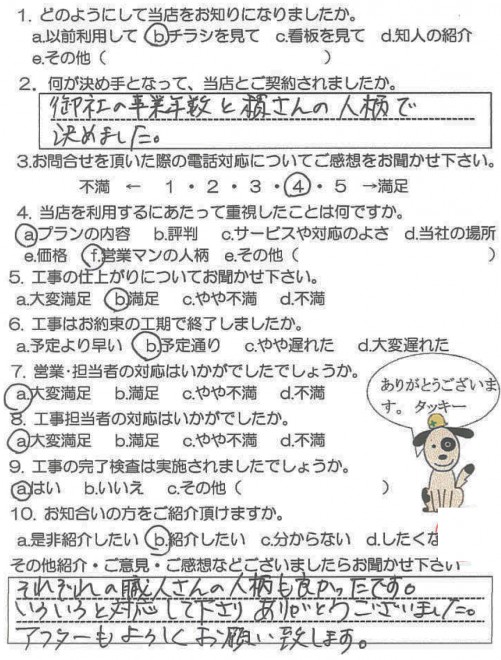 1. どのようにして当店をお知りになりましたか。
a.以前利用して b.チラシを見て c.看板を見て d.知人の紹介
e.その他（ ）
2. 何が決め手となって、当店とご契約されましたか。
御社の卒業年数と積さんの人柄で
決めました。
3.お問合せを頂いた際の電話対応についてご感想をお聞かせ下さい。
不満 ← 1・2・3・4・5 →満足
4. 当店を利用するにあたって重視したことは何ですか。
a.プランの内容 b.評判 c.サービスや対応のよさ d.当社の場所
e.価格 f.営業マンの人柄 e.その他（ ）
5. 工事の仕上がりについてお聞かせ下さい。
a.大変満足 b.満足 c.やや不満 d.不満
6. 工事はお約束の工期で終了しましたか。
a.予定より早い b.予定通り c.やや遅れた d.大変遅れた
7. 営業・担当者の対応はいかがでしたでしょうか。
a.大変満足 b.満足 c.やや不満 d.不満
8. 工事担当者の対応はいかがでしたか。
a.大変満足 b.満足 c.やや不満 d.不満
ありがとうございま
す。 タッキー
9. 工事の完了検査は実施されましたでしょうか。
a.はい b.いいえ c.その他（ ）
10. お知合いの方をご紹介頂けますか。
a.是非紹介したい b.紹介したい c.分からない d.したくな
その他紹介・ご意見・ご感想などございましたらお聞かせ下さい
それぞれの職人さんの人柄も良かったです。
いろいろと対応して下さりありがとうございました。
アフターもよろしくお願い致します。